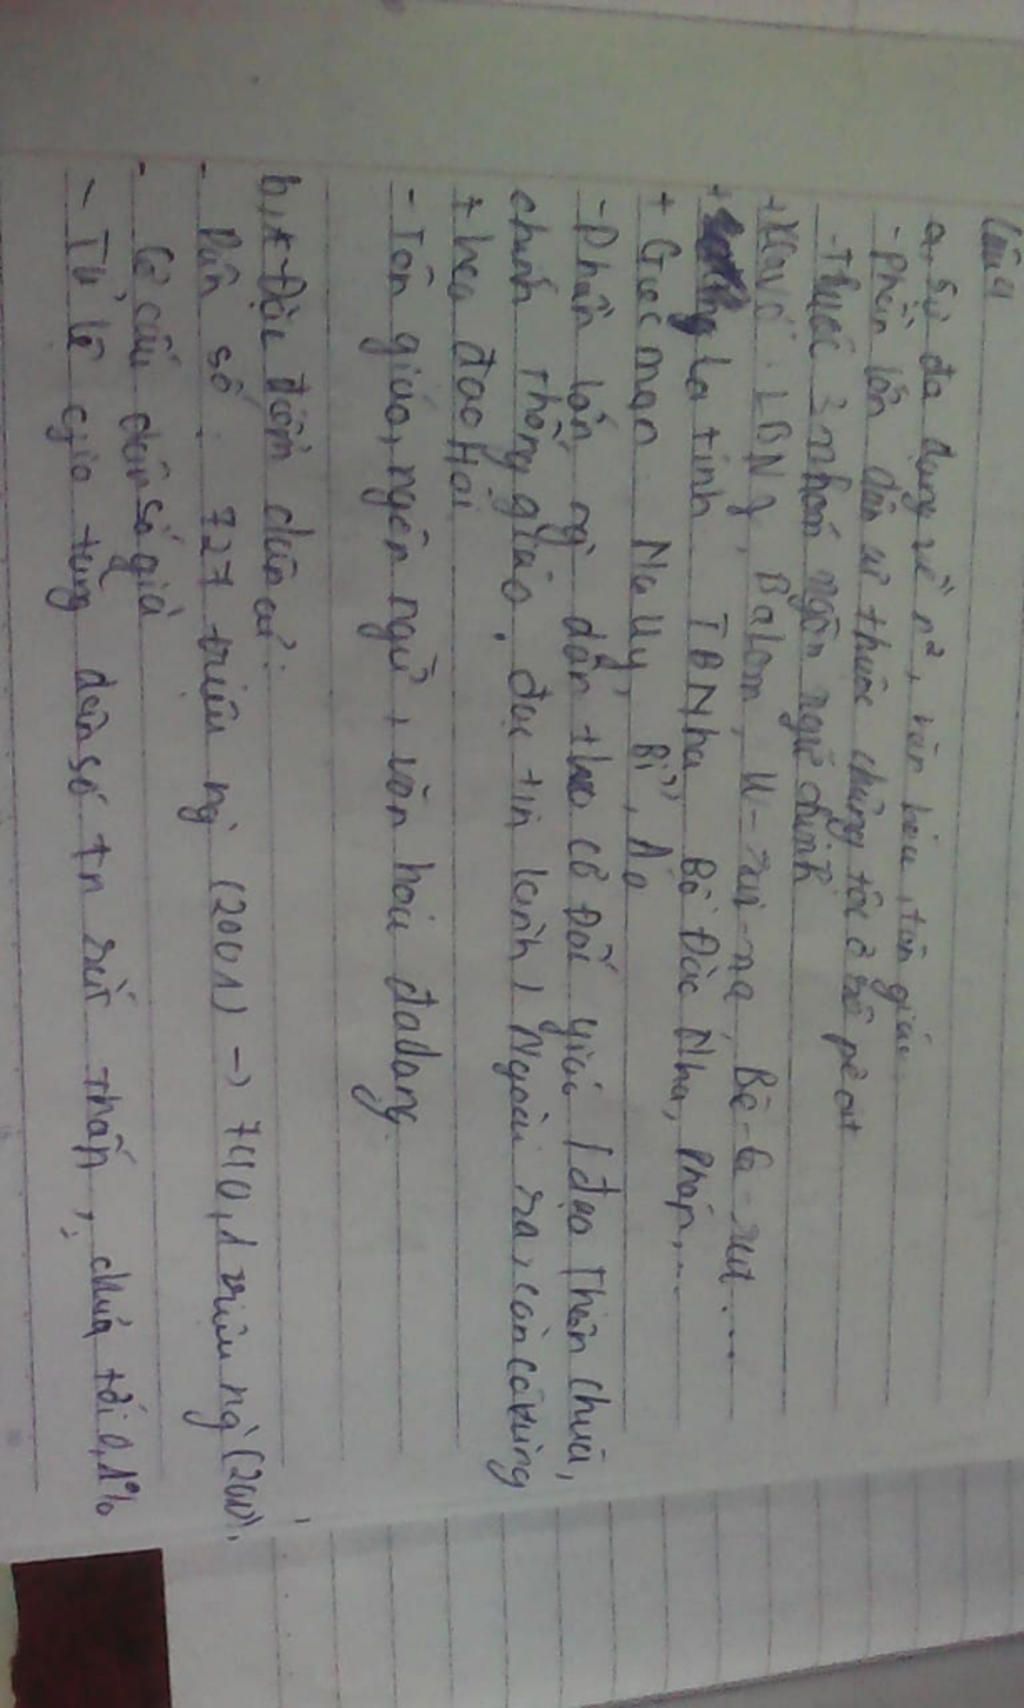 Câu 4
a, Sự đa dạng về n², văn hóa, tôn giáo.
- Phần lớn dân cư thuộc chủng tộc ơ rô pê ôit
- Thuộc 3 nhóm ngôn ngữ chính
+ : LBNg, Balan, U-rai-na, Bê-la-rut....
+ La tinh: TBNha Bồ Đào Nha, Pháp,...
+ Giecman: Na Uy, Bỉ, Áo
- Phần lớn ng dân theo cơ Đốc giáo (đạo Thiên chúa,
chính thống giáo, đạo tin lành) Ngoài ra, còn có vùng
theo đạo Hồi
- Tôn giáo, ngôn ngữ, văn hóa đa dạng.
b, * Đặc điểm dân cư:
- Dân số: 727 triệu ng (2001) → 740,1 triệu ng
- Cơ cấu dân số già
- Tỉ lệ gia tăng dân số tn rất thấp, chưa tới 0,1%